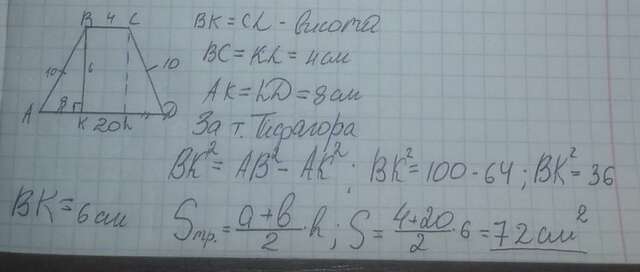 B 4 C
10 6 10
A 8 K 20 L D
BK = CL - висота
BC = KL = 4см
AK = LD = 8см
За т. Піфагора
BK² = AB² - AK²; BK² = 100 - 64; BK² = 36
BK = 6см
Sтр. = a+b/2 · h; S = 4+20/2 · 6 = 72см²